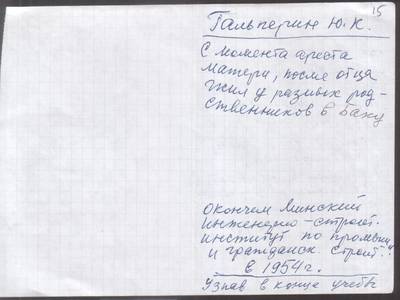 15
Гальперин Ю.К.
С момента ареста
матери, после отца
жил у разных род-
ственников в Баку
Окончил Минский
инженерно-строит.
институт по промышл.
и гражданск. строит."
в 1954 г.
Узнав в конце учебы